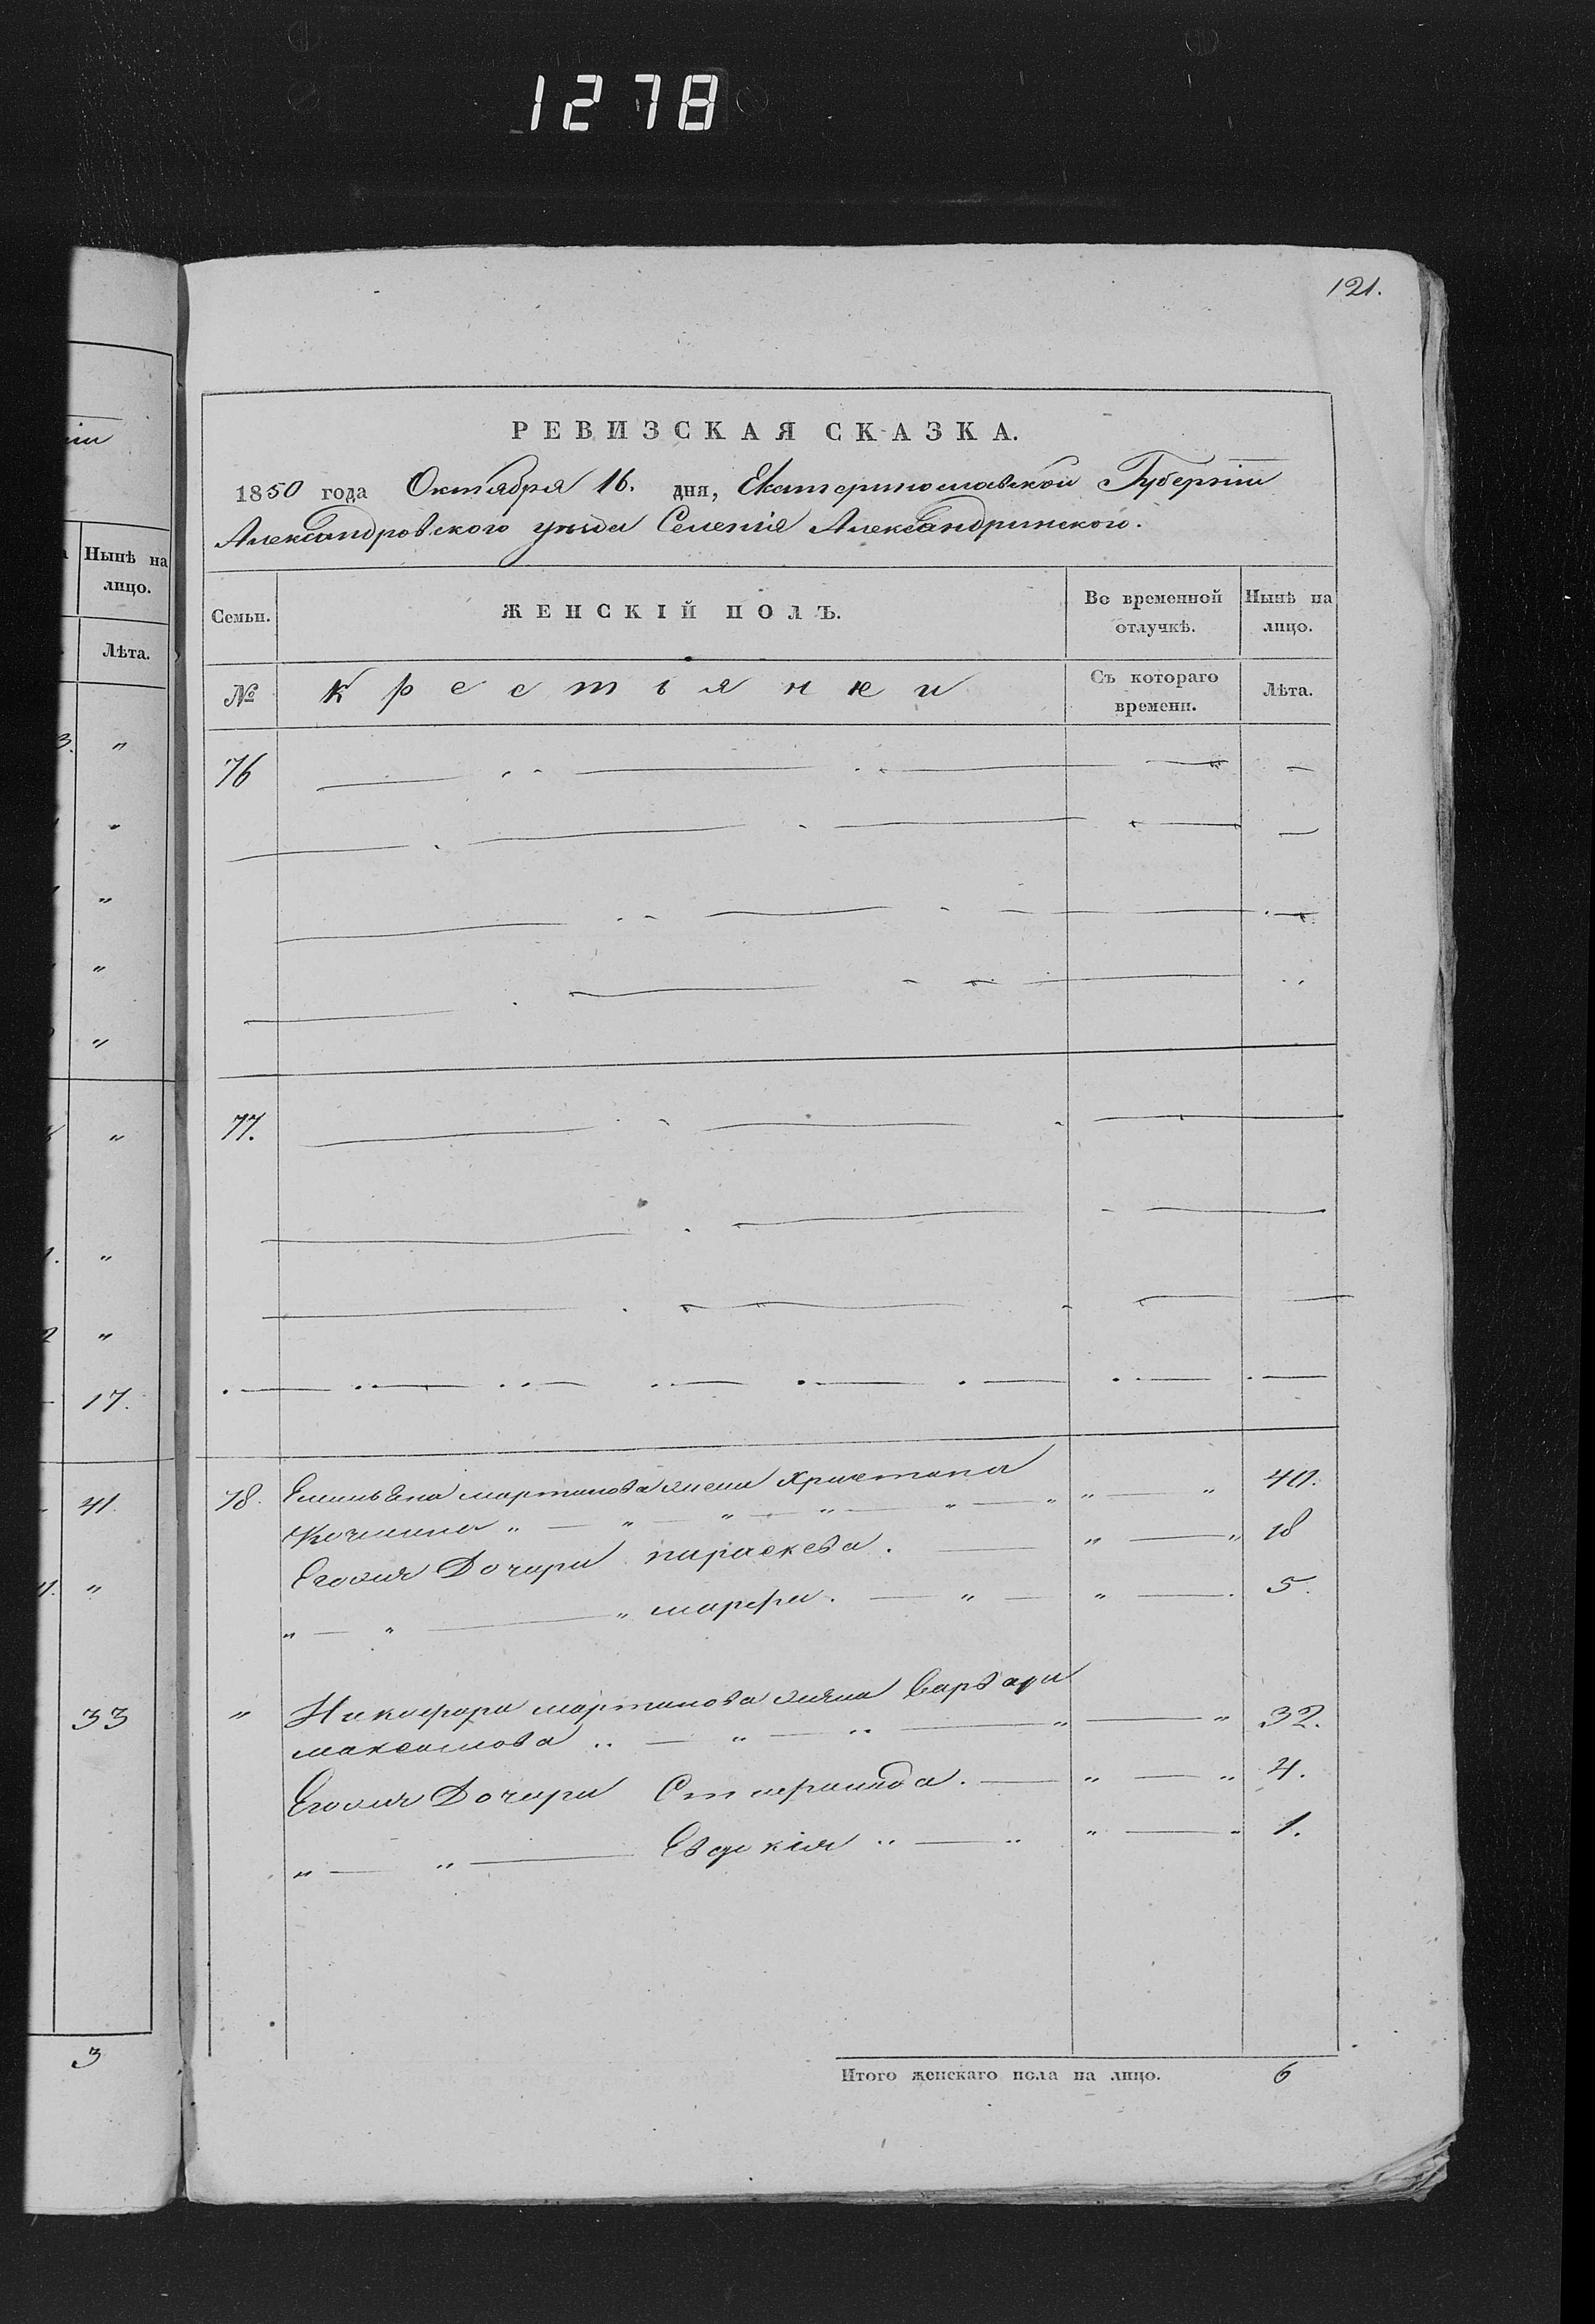 1278
121.
РЕВИЗСКАЯ СКАЗКА.
1850 года Октября 16. дня, Екатеринославской Губерніи
Александровского уезда Селенія Александринского.
Нынѣ на
лицо.
Лѣта.
Семьи.
ЖЕНСКІЙ ПОЛЪ.
Во временной
отлучкѣ.
Нынѣ на
лицо.
№
Крестьянки
Съ котораго
времени.
Лѣта.
76
77.
17.
78. Емильяна мартинова жена Христина 40.
41
Егожъ Дочери параскева. 18
" " " марфа. " " 5.
" Никифора мартинова жена Варвара
33
максимова 32.
Егожъ Дочери 4.
" " Евдокія " " 1.
3
Итого женскаго пола на лицо. 6